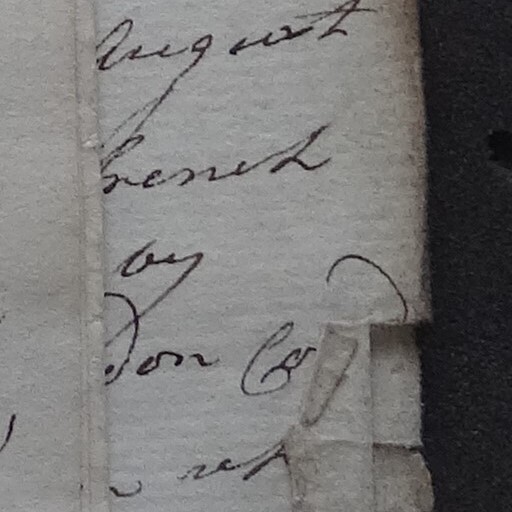 August
french
by
don Co